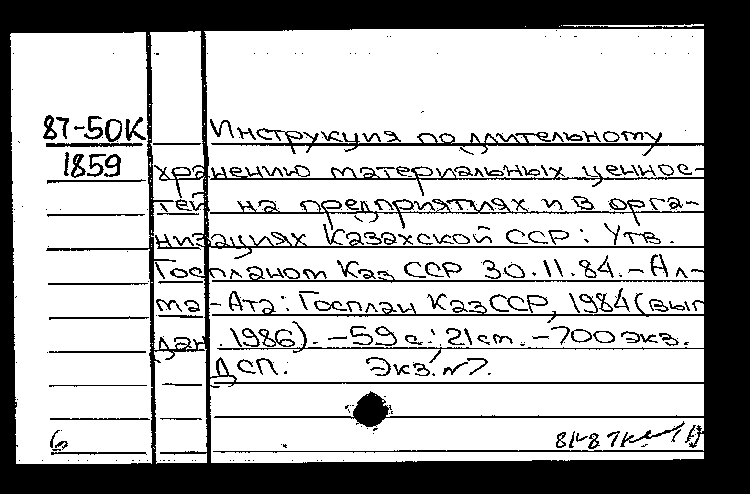 87-50К Инструкция по длительному
1859 хранению материальных ценнос-
тей на предприятиях и в орга-
низациях Казахской ССР: Утв.
Госпланом Каз ССР 30.11.84. - Ал-
ма-Ата: Госплан КазССР, 1984 (вып
дан. 1986). - 59 с.; 21 см. - 700 экз.
ДСП. Экз. №7.
6